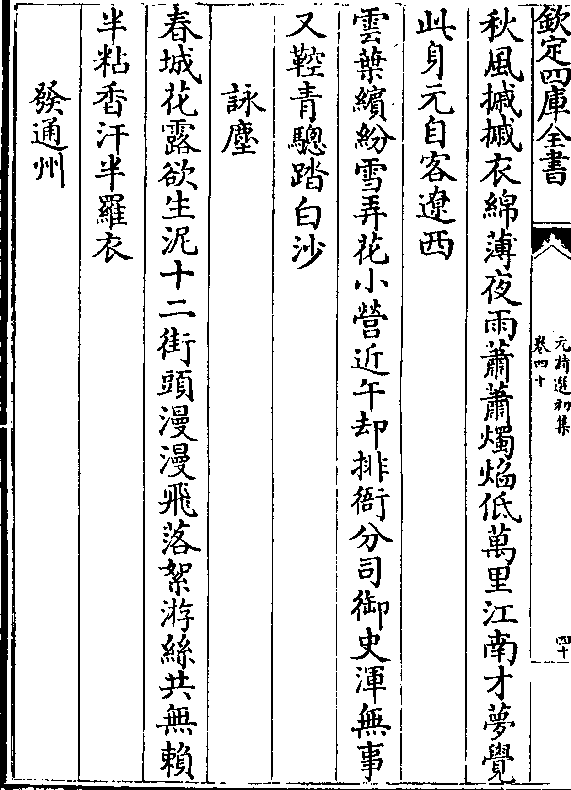 欽定四庫全書
元詩選初集
卷四十
四十
秋風摵摵衣綿薄夜雨蕭蕭燭焰低萬里江南才夢覺
此身元自客遼西
雲葉繽紛雪弄花小營近午却排衙分司御史渾無事
又鞚青驄踏白沙
詠塵
春城花露欲生泥十二街頭漫漫飛落絮游絲共無賴
半粘香汗半羅衣
發通州